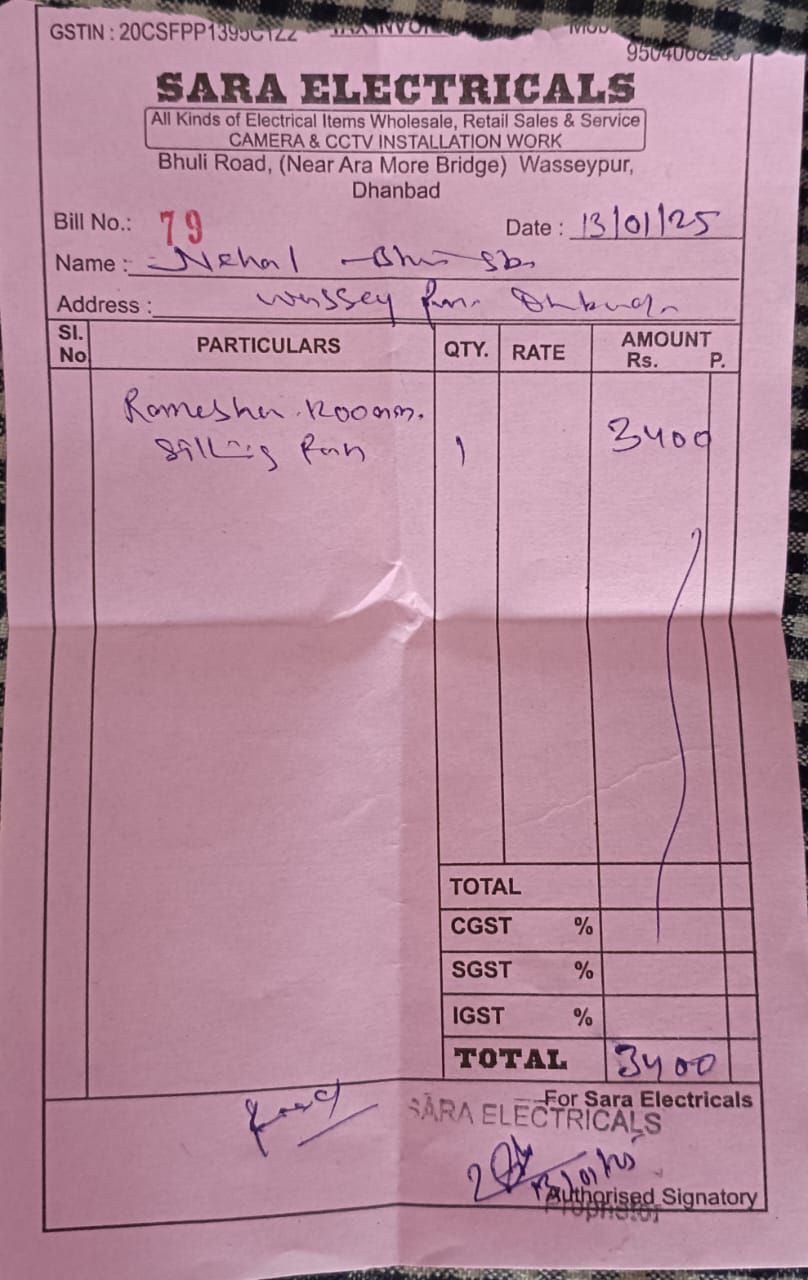 GSTIN : 20CSFPP1395C1ZZ TAX INVOICE MOB
SARA ELECTRICALS
All Kinds of Electrical Items Wholesale, Retail Sales & Service
CAMERA & CCTV INSTALLATION WORK
Bhuli Road, (Near Ara More Bridge) Wasseypur,
Dhanbad
Bill No.: 79 Date : 13/01/25
Name : Nehal
Address : Wassey
Sl. No PARTICULARS QTY. RATE AMOUNT Rs. P.
1200mm.
1 3400
TOTAL
CGST %
SGST %
IGST %
TOTAL 3400
For Sara Electricals
SARA ELECTRICALS
Authorised Signatory